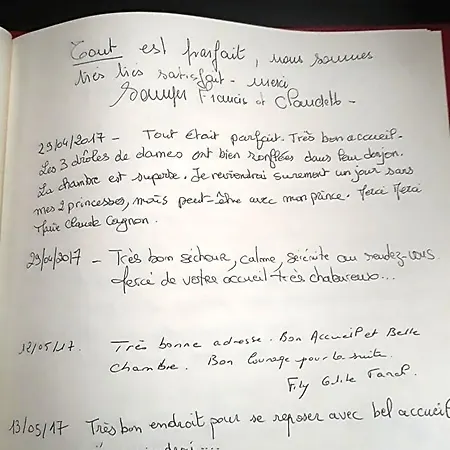 Tout est parfait, nous sommes
très très satisfait - merci
Francis et Claudette -
29/04/2017 - Tout était parfait. Très bon accueil -
Les 3 drôles de dames ont bien ronflées dans leur donjon.
La chambre est superbe. Je reviendrai surement un jour sans
mes 2 princesses, mais peut-être avec mon prince. Merci Merci
Marie Claude
29/04/2017 - Très bon séjour, calme, sérénité au rendez-vous
Merci de votre accueil très chaleureux...
12/05/17. Très bonne adresse. Bon Accueil et Belle
Chambre. Bon courage pour la suite.
13/05/17 Très bon endroit pour se reposer avec bel accueil